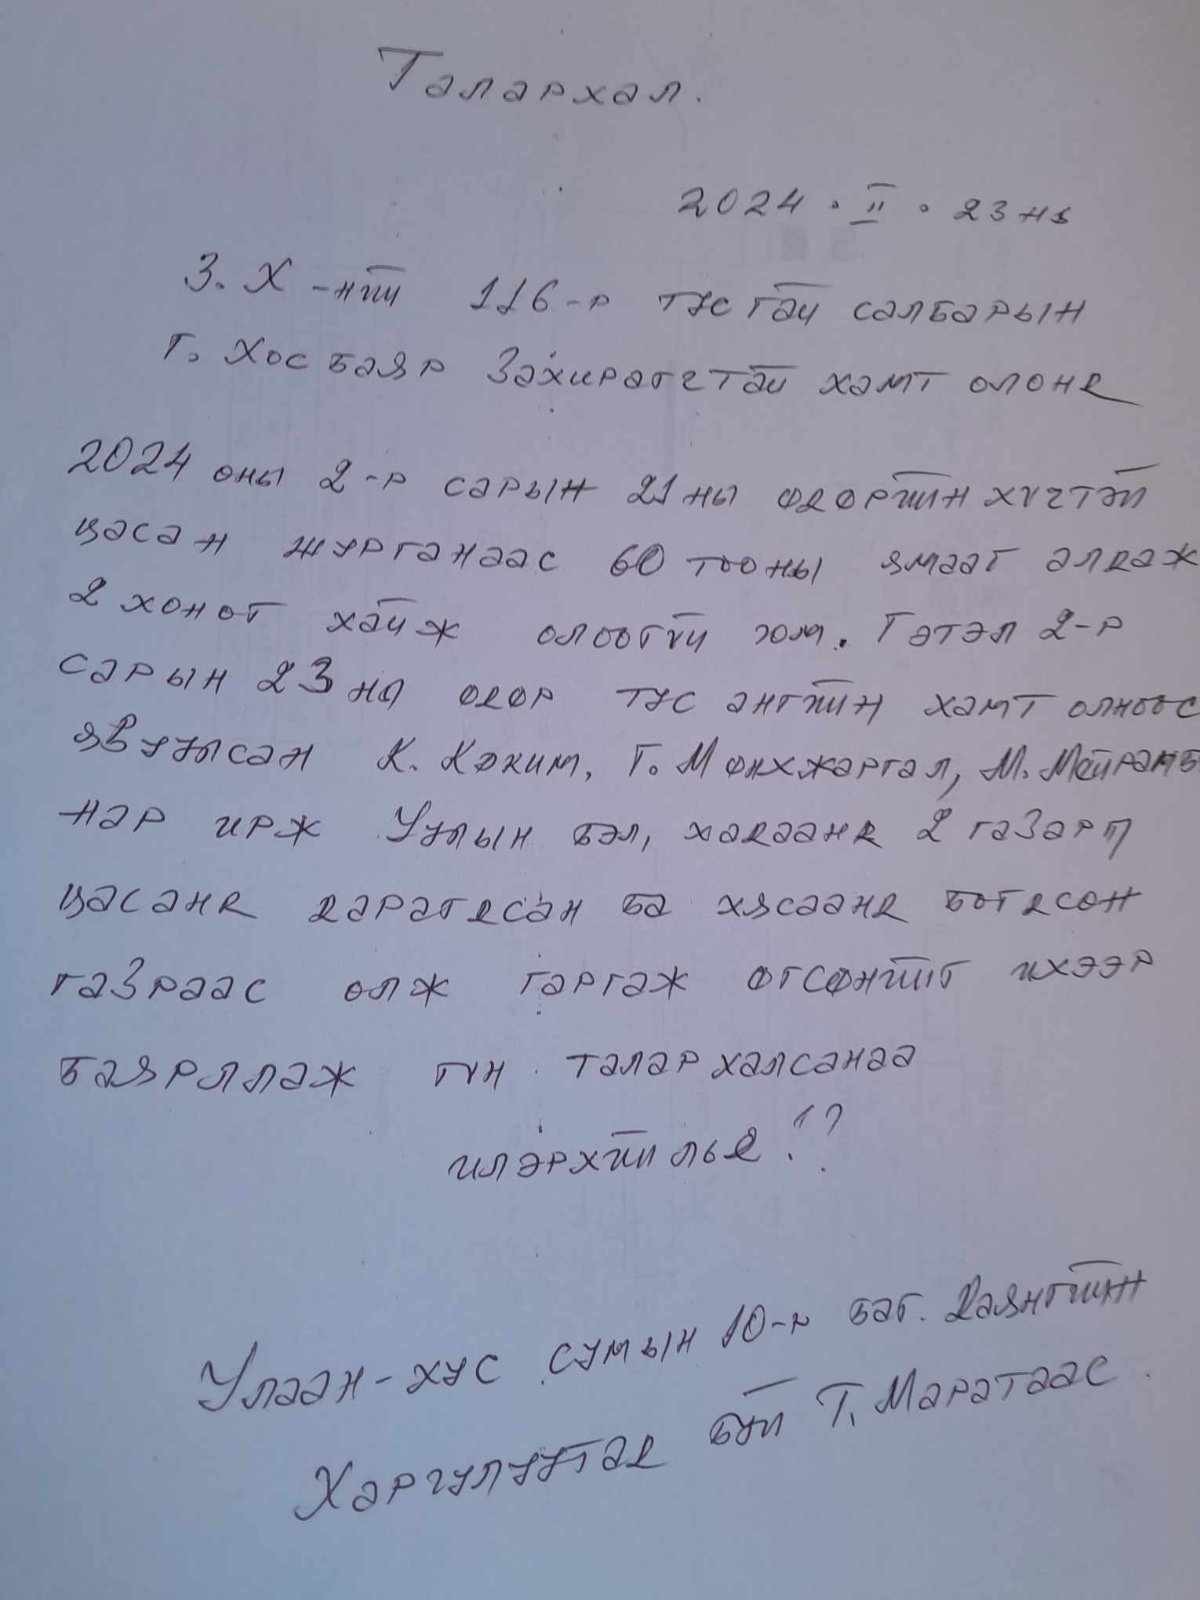 Талархал.
2024 . II . 23 нд
З. Х -ний 116-р тусгай салбарын
Г. Хосбаяр Захирагчтай хамт олонд
2024 оны 2-р сарын 21ны өдөрийн хүчтэй
цасан журганаас 60 тооны ямааг алдаж
2 хоног хайж олоогүй юм. Гэтэл 2-р
сарын 23 ны өдөр тус ангийн хамт олноос
явуулсан К. Коким, Г. Мөнхжаргал, М. Мейрамб
нар ирж Уулын бэл, хадаанд 2 газарт
цасанд дарагдсан ба хясаанд бөгдсөн
газраас олж гаргаж өгсөнийг ихээр
баярллаж гүн талархалсанаа
илэрхийлье!?
Улаан-хус сумын 10-р баг. Даянгийн
Харгулуутад буй Т. Маратаас